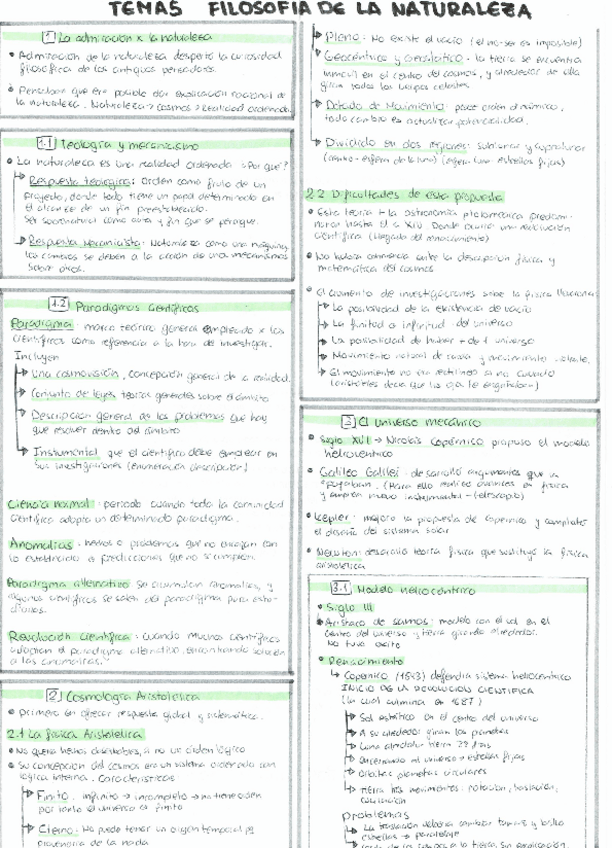 TEMA5 FILOSOFIA DE LA NATURALEZA
1 La admiracion x la naturaleza
Admiracion de la naturaleza despertó la curiosidad
filosofica de los antiguos pensadores.
Pensaban que era posible dar explicación racional de
la naturaleza. Naturaleza → cosmos → realidad ordenada
1.1 Teologia y mecanicismo
La naturaleza es una realidad ordenada ¿Por que?
Respuesta teologica: Orden como fruto de un
proyecto, donde todo tiene un papel determinado en
el alcance de un fin preestablecido.
Respuesta Mecanicista: Naturaleza como una maquina,
los cambios se deben a la acción de unos mecanismos
sobre otros.
1.2 Paradigmas Cientificos
Paradigma: marco teorico general empleado x los
cientificos como referencia a la hora de investigar.
Incluyen
Una cosmovisión, concepción general de la realidad.
Conjunto de leyes teorias generales sobre el ambito
Descripción general de los problemas que hay
que resolver dentro del ambito
Instrumental que el cientifico debe emplear en
sus investigaciones (enumeración descripcion)
Ciencia normal: periodo cuando toda la comunidad
cientifica adopta un determinado paradigma.
Anomalias: hechos o problemas que no encajan con
lo establecido o predicciones que no se cumplen.
Paradigma alternativo: se acumulan anomalias, y
algunos cientificos se salen del paradigma para estu-
diarlas.
Revolución cientifica: cuando muchos cientificos
adoptan el paradigma alternativo, encontrando solución
a las anomalias.
2 Cosmologia Aristotelica
primero en ofrecer respuesta global y sistematica.
2.1 La fisica Aristotelica
No quería hechos, si no un orden logico
Su concepción del cosmos era un sistema ordenado con
logica interna. Caracteristicas
Finito: infinito → incompleto → no tiene orden
por tanto el universo es finito
Eterno: No puede tener un origen temporal pq
provendria de la nada
Pleno: No existe el vacio (el no-ser es imposible)
Geocentrico y geoestatico: la tierra se encuentra
inmovil en el centro del cosmos, y alrededor de ella
giran todos los cuerpos celestes.
Dotado de Movimiento: posee orden dinamico,
todo cambio es actualizar potencialidad.
Dividido en dos regiones: sublunar y supralunar
2.2 Dificultades de esta propuesta
Esta teoria + la astronomia ptolemaica predomi-
naron hasta el s. XVI. Donde ocurre una revolución
cientifica (llegada del renacimiento)
No habia coherencia entre la descripción fisica y
matematica del cosmos
El aumento de investigaciones sobre la fisica
La posibilidad de la existencia de vacio
La finitud o infinitud del universo
La posibilidad de haber + de 1 universo
Movimiento natural de caida y movimiento
El movimiento no era rectilineo si no curvado
3 El universo mecánico
Siglo XVI → Nicolas Copérnico propuso el modelo
heliocentrico
Galileo Galilei: desarrolló argumentos que lo
apoyaban. (Para ello realizo avances en fisica
y empleo nuevo instrumental → telescopio)
Kepler: mejoro la propuesta de copernico y completo
el diseño del sistema solar
Newton: desarrolló teoria fisica que sustituyó la fisica
aristotelica
3.1 Modelo heliocentrico
Siglo III
Aristarco de samos: modelo con el sol en el
centro del universo y tierra girando alrededor.
No tuvo exito
Renacimiento
Copérnico (1543) defendia sistema heliocentrico
INICIO DE LA REVOLUCION CIENTIFICA
(la cual culmina en 1687)
Sol estático en el centro del universo
A su alrededor giran los planetas
Luna alrededor tierra
Encerrando al universo → estrellas fijas
Orbitas planetas circulares
Tierra tres movimientos: rotacion, traslación,
Problemas